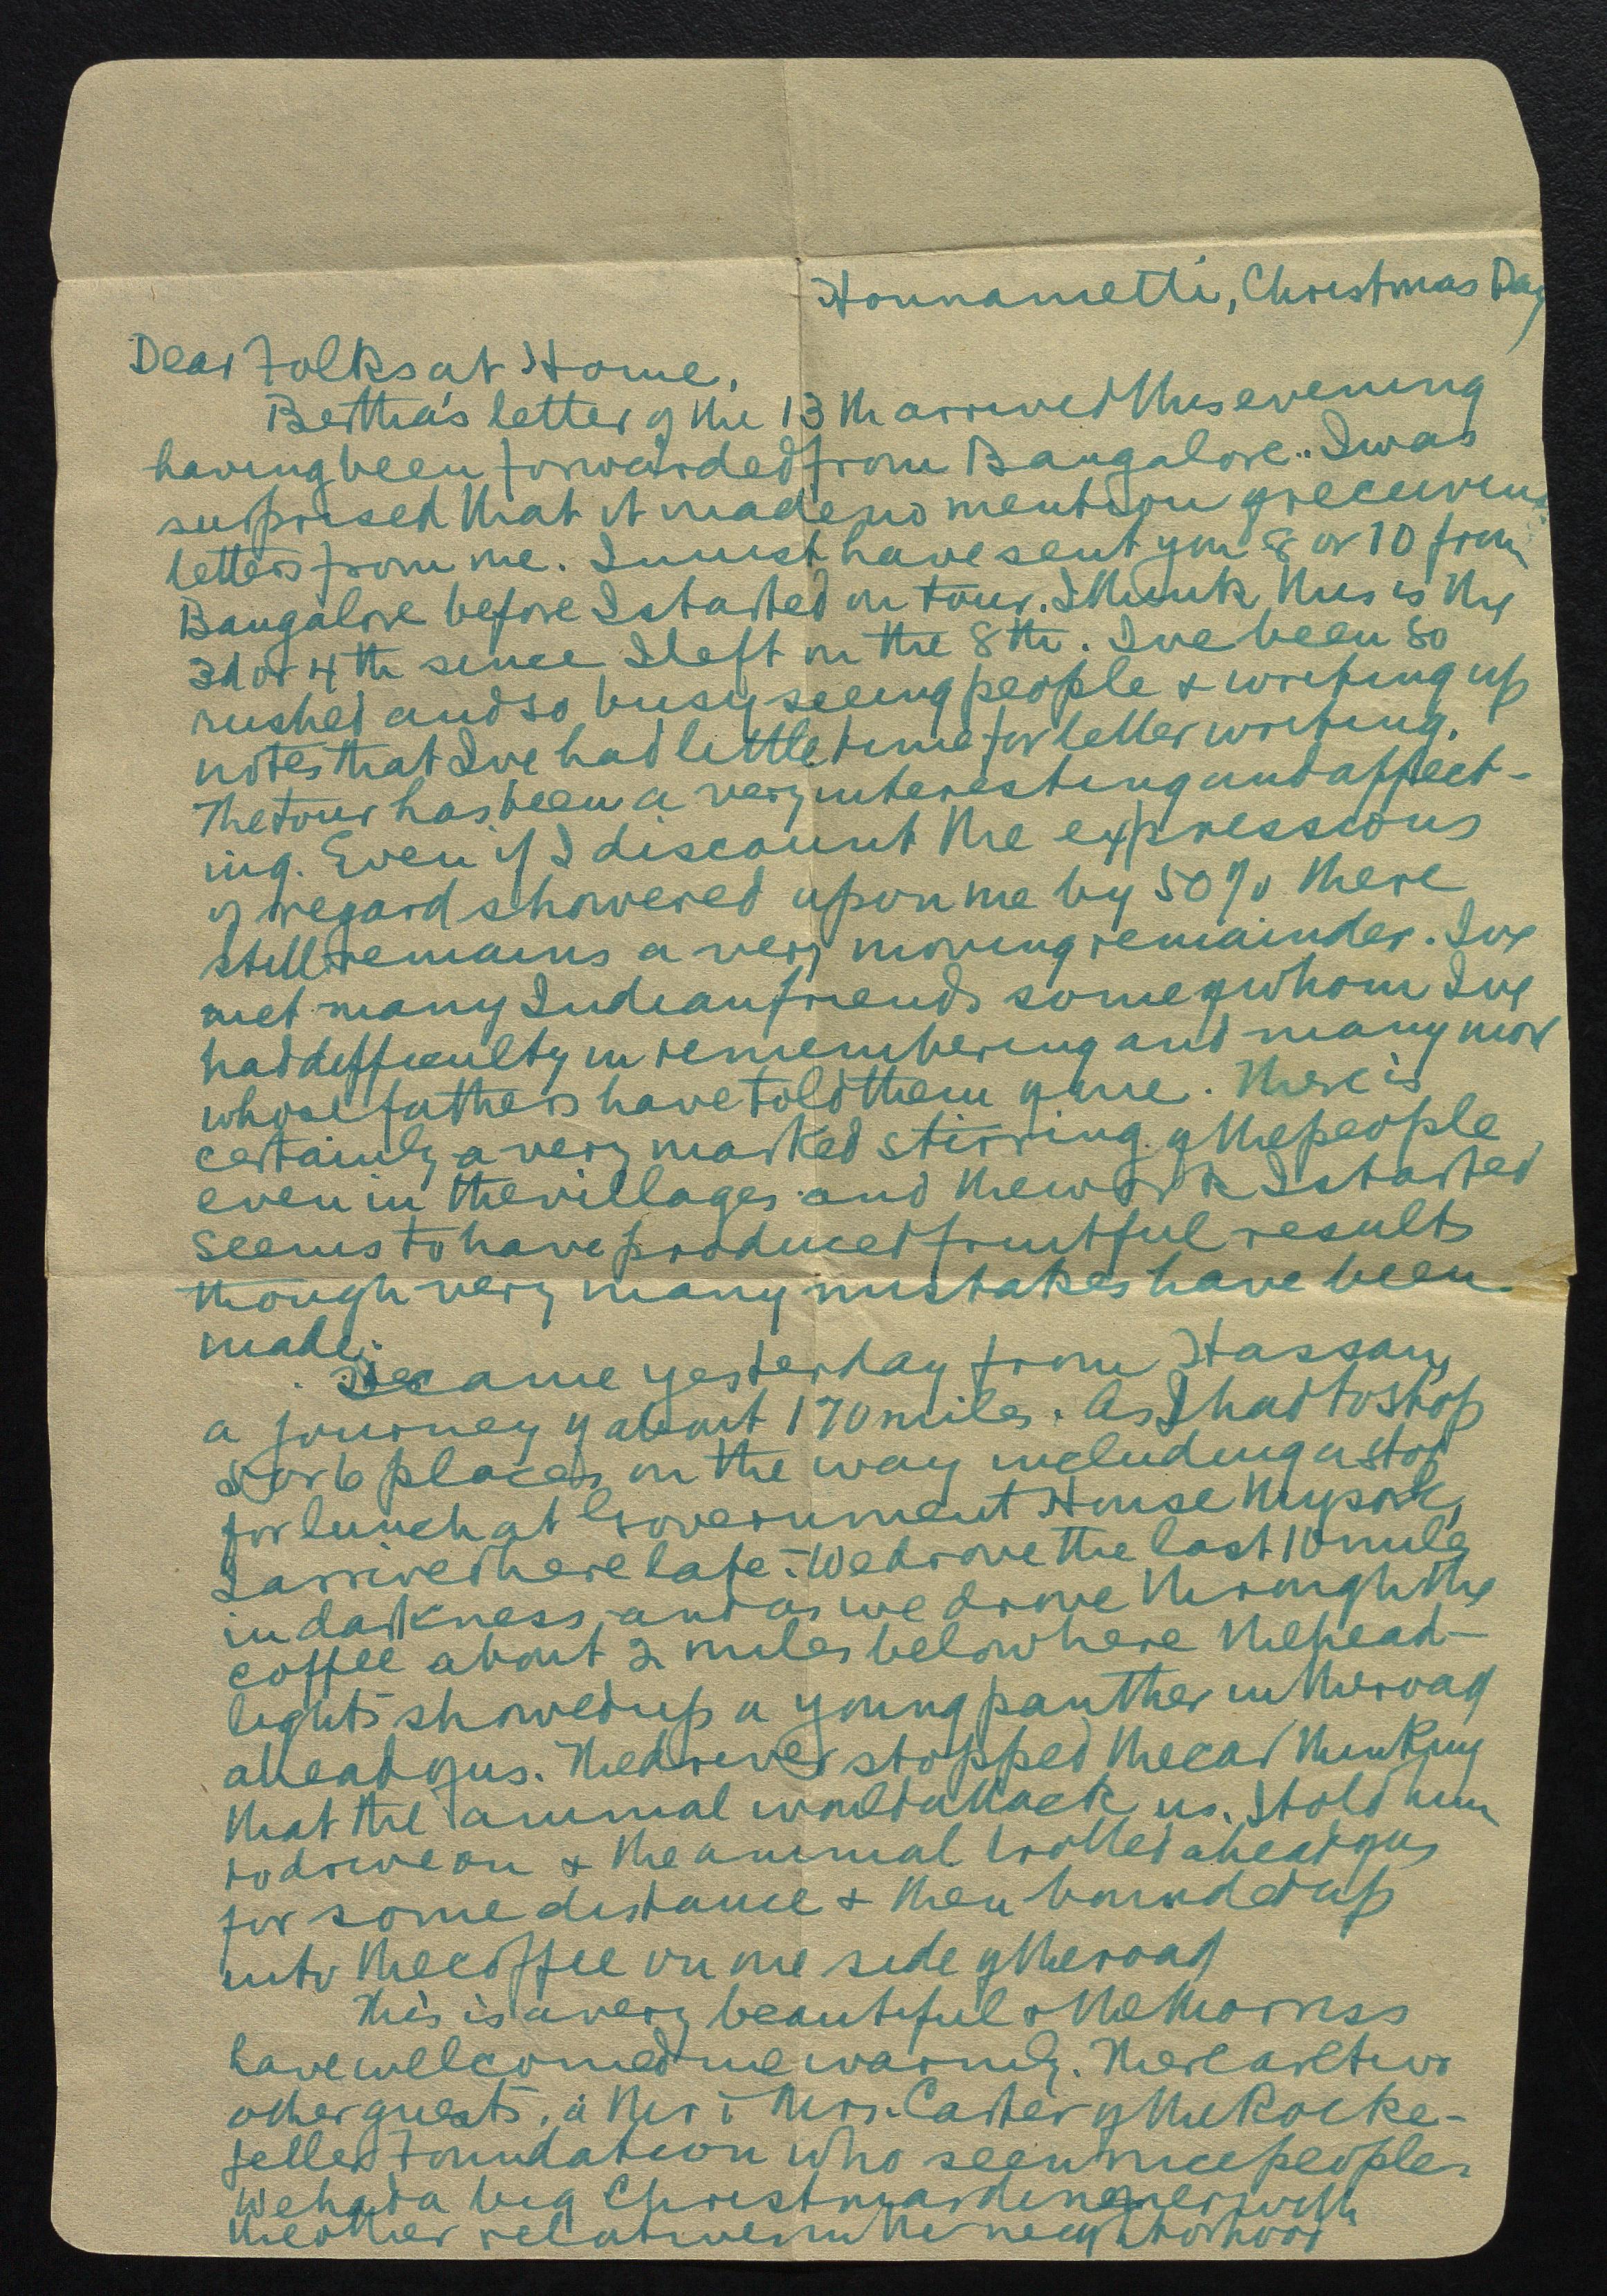 Honnametti, Christmas Day
Dear Folks at Home,
Bertha's letter of the 13th arrived this evening
having been forwarded from Bangalore. I was
surprised that it made no mention of receiving
letters from me. I must have sent you 8 or 10 from
Bangalore before I started on tour. I think this is the
3d or 4th since I left on the 8th. I've been so
rushed and so busy seeing people & writing up
notes that I've had little time for letter writing.
The tour has been a very interesting and affect-
ing. Even if I discount the expressions
of regard showered upon me by 50% there
still remains a very moving remainder. I've
met many Indian friends some of whom I've
had difficulty in remembering and many more
whose fathers have told them of me. There is
certainly a very marked stirring of the people
even in the villages and the work I started
seems to have produced fruitful results
though very many mistakes have been
made.
I came yesterday from Hassan,
a journey of about 170 miles. As I had to stop
5 or 6 places on the way including a stop
for lunch at Government House Mysore,
I arrived here late. We drove the last 10 miles
in darkness and as we drove through the
coffee about 2 miles below here the head-
lights showed up a young panther in the road
ahead of us. The driver stopped the car thinking
that the animal would attack us. I told him
to drive on & the animal trotted ahead of us
for some distance & then bounded up
into the coffee on one side of the road
This is a very beautiful & the Morriss
have welcomed me warmly. There are two
other guests, a Mr & Mrs. Carter of the Rocke-
feller Foundation who seem nice people.
We had a big Christmas dinner with
the other relatives in the neighborhood